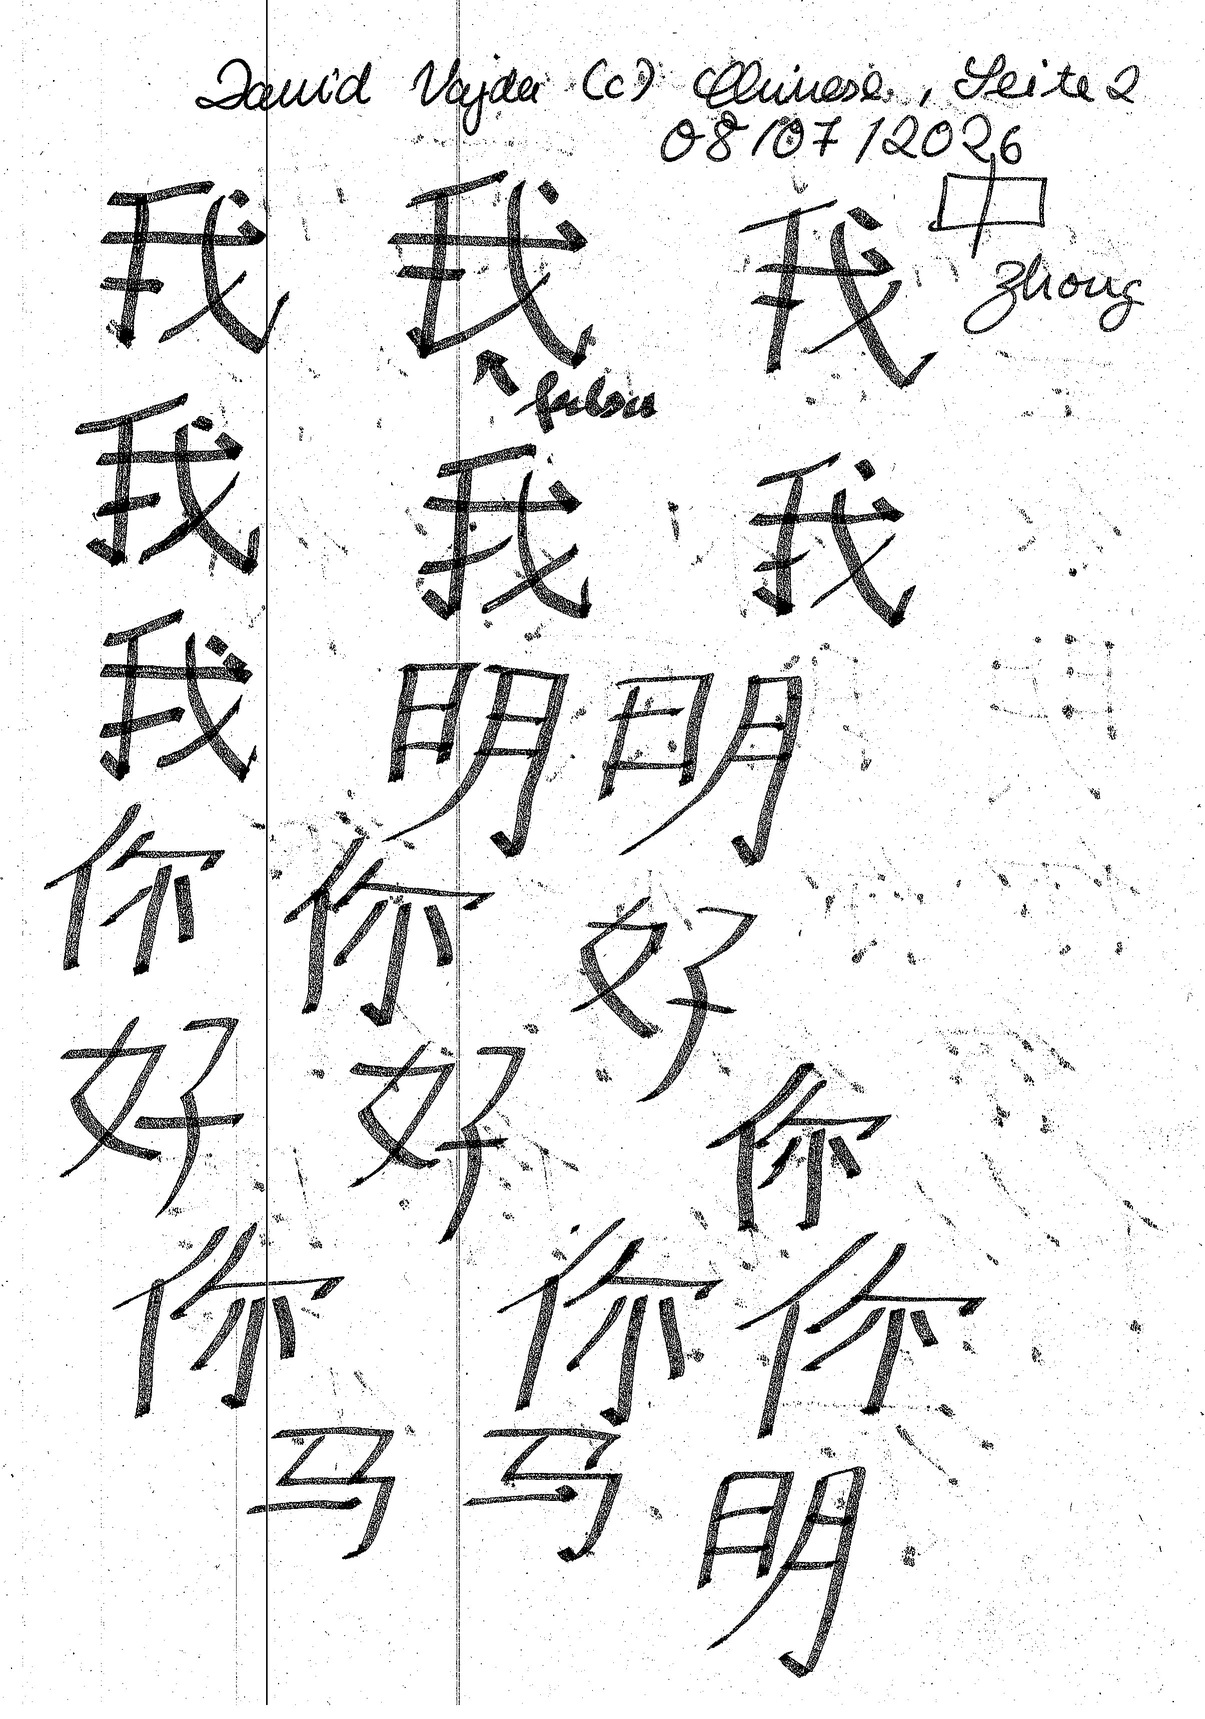 David Vajda (c) Chinese, Seite 2
08/07/2026
我 我 我 中
zhong
falsch
我 我 我
我 明 明
你 你 好
好 好 你
你 你 你
马 马 明